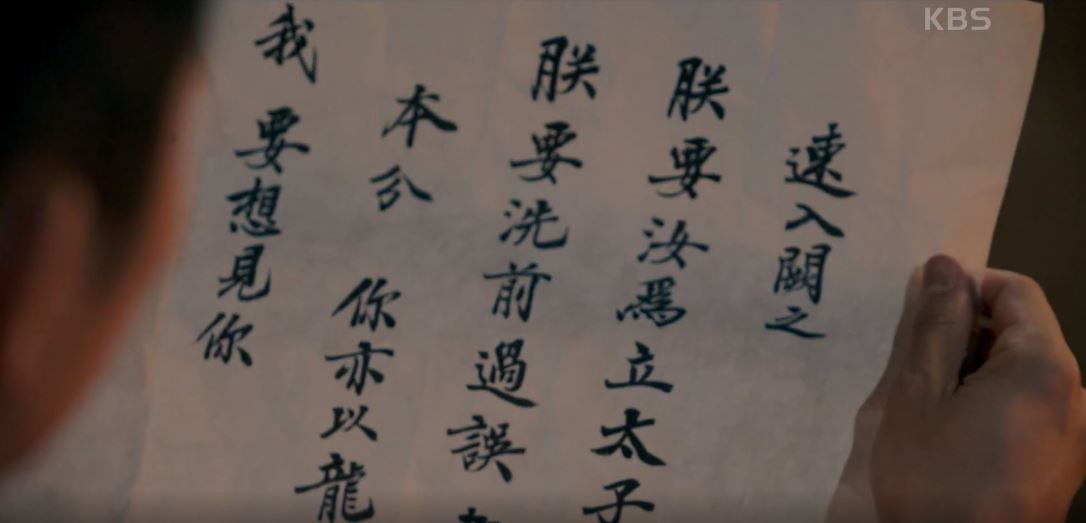 KBS
速入闕之
朕要汝焉立太子
朕要洗前過誤
本分 你亦以龍
我要想見你